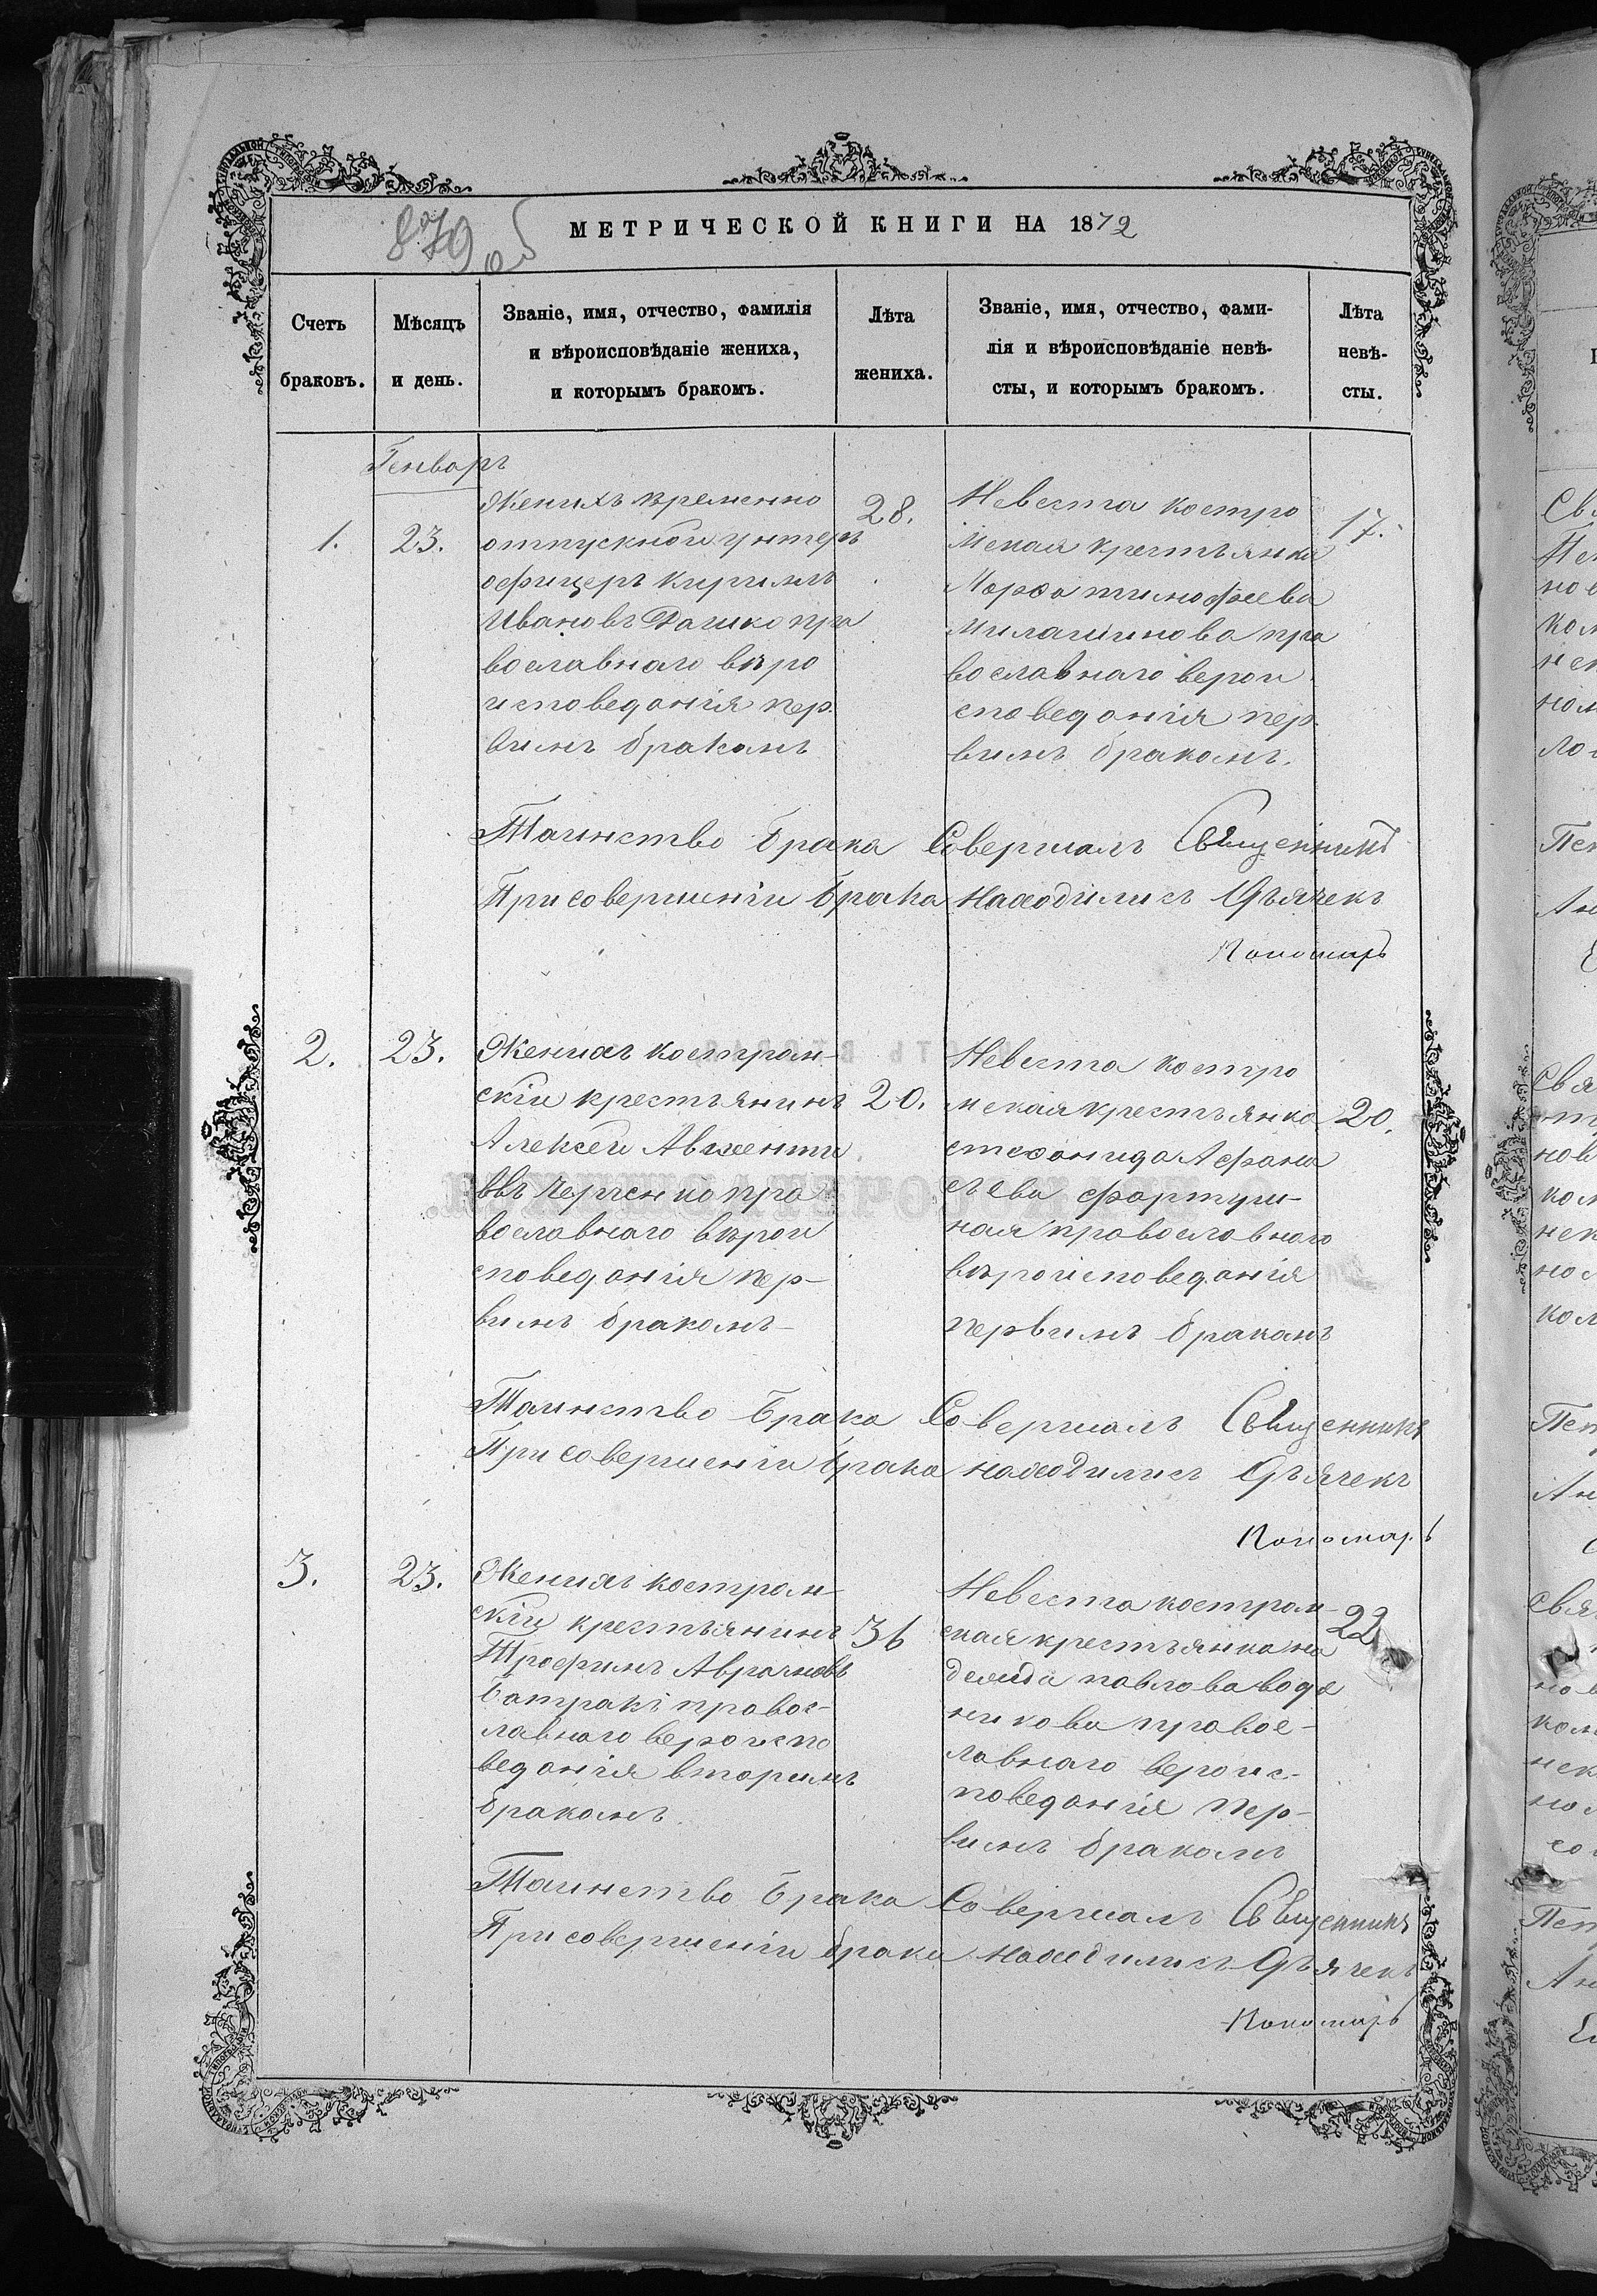 879 об
МЕТРИЧЕСКОЙ КНИГИ НА 1872
Счетъ
браковъ.
Мѣсяцъ
и день.
Званіе, имя, отчество, фамилія
и вѣроисповѣданіе жениха,
и которымъ бракомъ.
Лѣта
жениха.
Званіе, имя, отчество, фами-
лія и вѣроисповѣданіе невѣ-
сты, и которымъ бракомъ.
Лѣта
невѣ-
сты.
Генварь
1.
23.
Женихъ временно
отпускной унтеръ
офицеръ Кирилъ
Ивановъ Дашко пра
вославнаго вѣро
исповеданія пер.
вимъ бракомъ
28.
Невеста костро
мская крестьянка
Марѳа тимофеева
Милашинова пра
вославнаго верои
споведанія пер.
вимъ бракомъ.
17.
Таинство брака Совершалъ Священникъ
При совершеніи брака находились Дьячекъ
Пономарь
2.
23.
Женихъ костром-
скіи крестьянинъ
Алексеи Авксенти
евъ Черненко пра
вославнаго вѣрои
споведанія пер-
вимъ бракомъ-
20.
Невеста костро
мская крестьянка
стеѳанида Афана
сьева
ная православнаго
вѣроисповеданія
первимъ бракомъ
20.
Таинство брака Совершалъ Священникъ
При совершеніи брака находились Дьячекъ
Пономарь
3.
23.
Женихъ костром-
скіи крестьянинъ
Трофимъ Аврамовъ
Батракъ правос-
лавнаго вероиспо
веданія вторимъ
бракомъ.
36
Невеста костром-
ская крестьянка
павлова водя
никова правос-
лавнаго вероис-
поведанія пер-
вимъ бракомъ
22
Таинство брака Совершалъ Священникъ
При совершеніи брака находились Дьячекъ
Пономарь